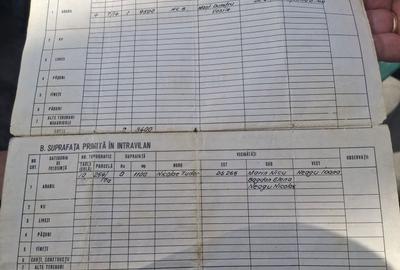 1 ARABIL 4 7/4 1 9500 Moșt Dumitru
Vasile
2 VII
3 LIVEZI
4 PĂȘUNI
5 FÎNEȚE
6 PĂDURI
7 ALTE TERENURI
NEAGRICOLE
TOTAL 2 3400
B. SUPRAFAȚA PRIMITĂ ÎN INTRAVILAN
NR. CRT. CATEGORIA DE FOLOSINȚĂ NR. TOPOGRAFIC SUPRAFAȚA VECINĂTĂȚI OBSERVAȚII
TARLA (SOLA) PARCELA Ha mp NORD EST SUD VEST
1 ARABIL 0 1100 Nicolae Tudor DS 266 Marin Nicu Neagu Ioana
Bogdan Elena
Neagu Nicolae
2 VII
3 LIVEZI
4 PĂȘUNI
5 FÎNEȚE
6 CURȚI, CONSTRUCȚII
7 ALTE TERENURI